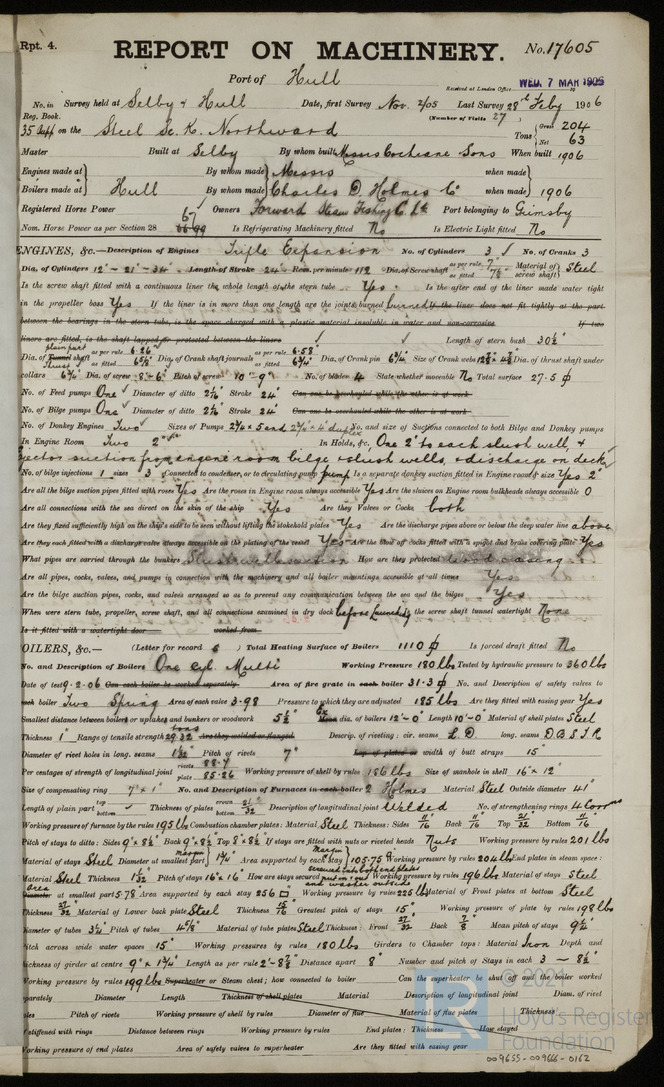 Rpt. 4.
REPORT ON MACHINERY. No. 17605
Port of Hull
Received at London Office WED. 7 MAR 1906
No. in Survey held at Selby & Hull Date, first Survey Nov. 2/05 Last Survey 28th Feby 1906
Reg. Book. (Number of Visits 27)
35 Supp on the Steel Sc. K. Northward Tons Gross 204 Net 63
Master Built at Selby By whom built Messrs Cochrane Sons When built 1906
Engines made at By whom made Messrs when made
Boilers made at Hull By whom made Charles D. Holmes & Co when made 1906
Registered Horse Power Owners Forward Steam Fishing C. Ld Port belonging to Grimsby
Nom. Horse Power as per Section 28 67 Is Refrigerating Machinery fitted No Is Electric Light fitted No
ENGINES, &c.—Description of Engines Triple Expansion No. of Cylinders 3 No. of Cranks 3
Dia. of Cylinders 12"-21"-34" Length of Stroke 24" Revs. per minute 112 Dia. of Screw shaft as per rule 7" as fitted 7½" Material of screw shaft Steel
Is the screw shaft fitted with a continuous liner the whole length of the stern tube Yes Is the after end of the liner made water tight
in the propeller boss Yes If the liner is in more than one length are the joints burned burned If the liner does not fit tightly at the part
between the bearings in the stern tube, is the space charged with a plastic material insoluble in water and non-corrosive If two
liners are fitted, is the shaft lapped or protected between the liners Length of stern bush 30½"
Dia. of Tunnel shaft plain part Thrust as per rule 6.26" as fitted 6⅝" Dia. of Crank shaft journals as per rule 6.58" as fitted 6¾" Dia. of Crank pin 6¾" Size of Crank webs Dia. of thrust shaft under
collars 6¾" Dia. of screw 8'-6" Pitch of screw 10'-9" No. of blades 4 State whether moveable No Total surface 27.5
No. of Feed pumps One Diameter of ditto 2⅛" Stroke 24" Can one be overhauled while the other is at work
No. of Bilge pumps One Diameter of ditto 2⅛" Stroke 24" Can one be overhauled while the other is at work
No. of Donkey Engines Two Sizes of Pumps duplex No. and size of Suctions connected to both Bilge and Donkey pumps
In Engine Room Two 2" In Holds, &c. One 2" to each slush well, &
ejector suction from engine room bilge & slush wells, & discharge on deck
No. of bilge injections 1 sizes 3 Connected to condenser, or to circulating pump pump Is a separate donkey suction fitted in Engine room & size Yes 2"
Are all the bilge suction pipes fitted with roses Yes Are the roses in Engine room always accessible Yes Are the sluices on Engine room bulkheads always accessible 0
Are all connections with the sea direct on the skin of the ship Yes Are they Valves or Cocks both
Are they fixed sufficiently high on the ship's side to be seen without lifting the stokehold plates Yes Are the discharge pipes above or below the deep water line above
Are they each fitted with a discharge valve always accessible on the plating of the vessel Yes Are the blow off cocks fitted with a spigot and brass covering plate Yes
What pipes are carried through the bunkers How are they protected wood casing
Are all pipes, cocks, valves, and pumps in connection with the machinery and all boiler mountings accessible at all times Yes
Are the bilge suction pipes, cocks, and valves arranged so as to prevent any communication between the sea and the bilges Yes
When were stern tube, propeller, screw shaft, and all connections examined in dry dock before launching Is the screw shaft tunnel watertight None
Is it fitted with a watertight door worked from
OILERS, &c.— (Letter for record S) Total Heating Surface of Boilers 1110 Is forced draft fitted No
No. and Description of Boilers One Cyl. Multi Working Pressure 180 lbs Tested by hydraulic pressure to 360 lbs
Date of test 9.2.06 Can each boiler be worked separately Area of fire grate in each boiler 31.3 No. and Description of safety valves to
each boiler Two Spring Area of each valve 3.98 Pressure to which they are adjusted 185 lbs Are they fitted with easing gear Yes
Smallest distance between boilers or uptakes and bunkers or woodwork 5½" Ex Mean dia. of boilers 12'-0" Length 10'-0" Material of shell plates Steel
Thickness 1" Range of tensile strength 29.32 tons Are they welded or flanged Descrip. of riveting: cir. seams L.D. long. seams D.B.S.T.R
Diameter of rivet holes in long. seams 1 1/32" Pitch of rivets 7" Lap of plates or width of butt straps 15"
Per centages of strength of longitudinal joint rivets 88.4 plate 85.26 Working pressure of shell by rules 186 lbs Size of manhole in shell 16" x 12"
Size of compensating ring 7" x 1" No. and Description of Furnaces in each boiler 2 Holmes Material Steel Outside diameter 41"
Length of plain part top bottom Thickness of plates crown bottom 21/32" Description of longitudinal joint Welded No. of strengthening rings 4
Working pressure of furnace by the rules 195 lbs Combustion chamber plates: Material Steel Thickness: Sides 11/16" Back 11/16" Top 21/32" Bottom 11/16"
Pitch of stays to ditto: Sides 9" x 8½" Back 9" x 8½" Top 8" x 8½" If stays are fitted with nuts or riveted heads Nuts Working pressure by rules 201 lbs
Material of stays Steel Diameter at smallest part 1¾" Area supported by each stay 105.75 Working pressure by rules 204 lbs End plates in steam space:
Material Steel Thickness 1 1/32" Pitch of stays 16" x 16" How are stays secured screwed into both end plates nut in & out and washer outside Working pressure by rules 196 lbs Material of stays Steel
Area Diameter at smallest part 5.78 Area supported by each stay 256 Working pressure by rules 225 lbs Material of Front plates at bottom Steel
Thickness 27/32" Material of Lower back plate Steel Thickness 15/16" Greatest pitch of stays 15" Working pressure of plate by rules 198 lbs
Diameter of tubes 3¼" Pitch of tubes 4⅝" Material of tube plates Steel Thickness: Front 27/32" Back ⅞" Mean pitch of stays 9¼"
Pitch across wide water spaces 15" Working pressures by rules 180 lbs Girders to Chamber tops: Material Iron Depth and
thickness of girder at centre 9" x 1¾" Length as per rule 2'-8⅞" Distance apart 8" Number and pitch of Stays in each 3 - 8½"
Working pressure by rules 199 lbs Superheater or Steam chest; how connected to boiler Can the superheater be shut off and the boiler worked
separately Diameter Length Thickness of shell plates Material Description of longitudinal joint Diam. of rivet
holes Pitch of rivets Working pressure of shell by rules Diameter of flue Material of flue plates Thickness
If stiffened with rings Distance between rings Working pressure by rules End plates: Thickness How stayed
Working pressure of end plates Area of safety valves to superheater Are they fitted with easing gear
© 2021
Lloyd's Register
Foundation
009655-009666-0162